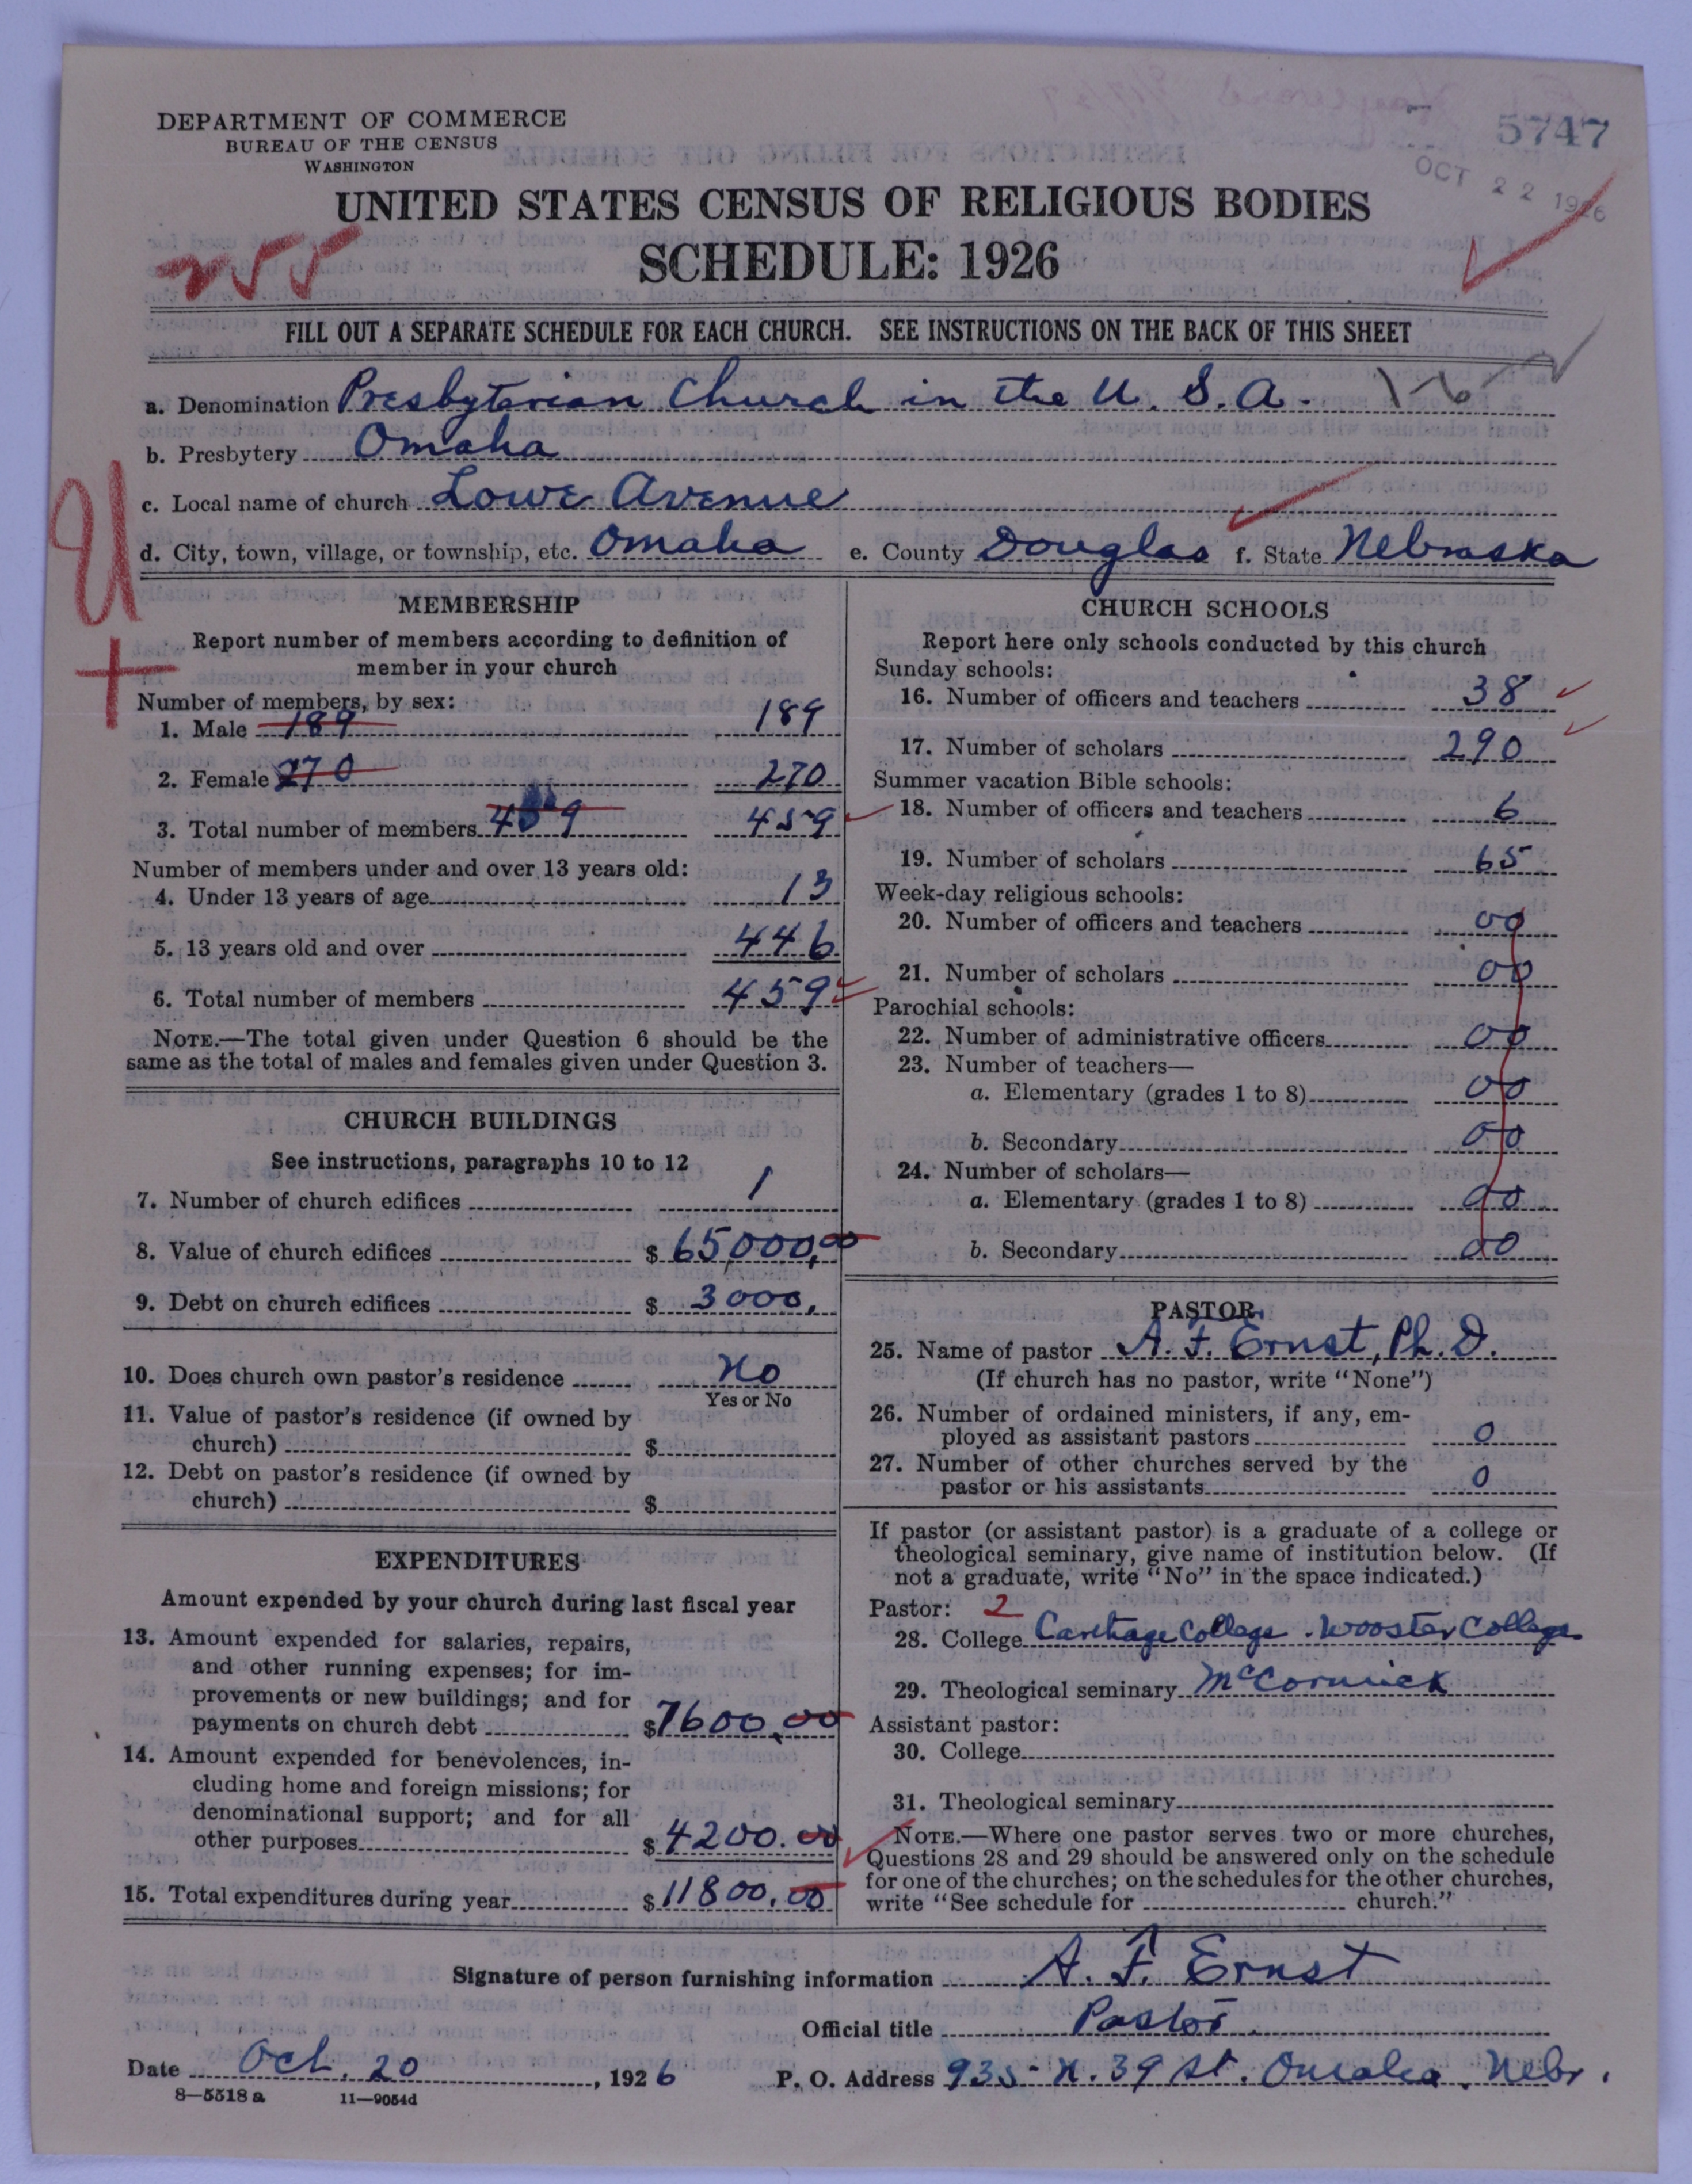 5747
OCT 22 1926
DEPARTMENT OF COMMERCE
BUREAU OF THE CENSUS
WASHINGTON
UNITED STATES CENSUS OF RELIGIOUS BODIES
SCHEDULE: 1926
FILL OUT A SEPARATE SCHEDULE FOR EACH CHURCH. SEE INSTRUCTIONS ON THE BACK OF THIS SHEET
a. Denomination Presbyterian Church in the U. S. A.
b. Presbytery Omaha
c. Local name of church Lowe Avenue
d. City, town, village, or township, etc. Omaha e. County Douglas f. State Nebraska
MEMBERSHIP
Report number of members according to definition of
member in your church
Number of members, by sex:
1. Male 189 189
2. Female 270 270
3. Total number of members 459 459
Number of members under and over 13 years old:
4. Under 13 years of age 13
5. 13 years old and over 446
6. Total number of members 459
NOTE.—The total given under Question 6 should be the
same as the total of males and females given under Question 3.
CHURCH BUILDINGS
See instructions, paragraphs 10 to 12
7. Number of church edifices 1
8. Value of church edifices $ 65,000,00
9. Debt on church edifices $ 3000.
10. Does church own pastor's residence No
Yes or No
11. Value of pastor's residence (if owned by
church) $
12. Debt on pastor's residence (if owned by
church) $
EXPENDITURES
Amount expended by your church during last fiscal year
13. Amount expended for salaries, repairs,
and other running expenses; for im-
provements or new buildings; and for
payments on church debt $7600.00
14. Amount expended for benevolences, in-
cluding home and foreign missions; for
denominational support; and for all
other purposes $ 4200.00
15. Total expenditures during year $ 11800.00
CHURCH SCHOOLS
Report here only schools conducted by this church
Sunday schools:
16. Number of officers and teachers 38
17. Number of scholars 290
Summer vacation Bible schools:
18. Number of officers and teachers 6
19. Number of scholars 65
Week-day religious schools:
20. Number of officers and teachers 00
21. Number of scholars 00
Parochial schools:
22. Number of administrative officers 00
23. Number of teachers—
a. Elementary (grades 1 to 8) 00
b. Secondary 00
24. Number of scholars—
a. Elementary (grades 1 to 8) 00
b. Secondary 00
PASTOR
25. Name of pastor A. F. Ernst, Ph. D.
(If church has no pastor, write "None")
26. Number of ordained ministers, if any, em-
ployed as assistant pastors 0
27. Number of other churches served by the
pastor or his assistants 0
If pastor (or assistant pastor) is a graduate of a college or
theological seminary, give name of institution below. (If
not a graduate, write "No" in the space indicated.)
Pastor: 2
28. College Carthage College . Wooster College
29. Theological seminary McCormick
Assistant pastor:
30. College
31. Theological seminary
NOTE.—Where one pastor serves two or more churches,
Questions 28 and 29 should be answered only on the schedule
for one of the churches; on the schedules for the other churches,
write "See schedule for church."
Signature of person furnishing information A. F. Ernst
Official title Pastor
Date Oct. 20, 1926 P. O. Address 935 - N. 39 St. Omaha, Nebr.
8—5518 a 11—9054d